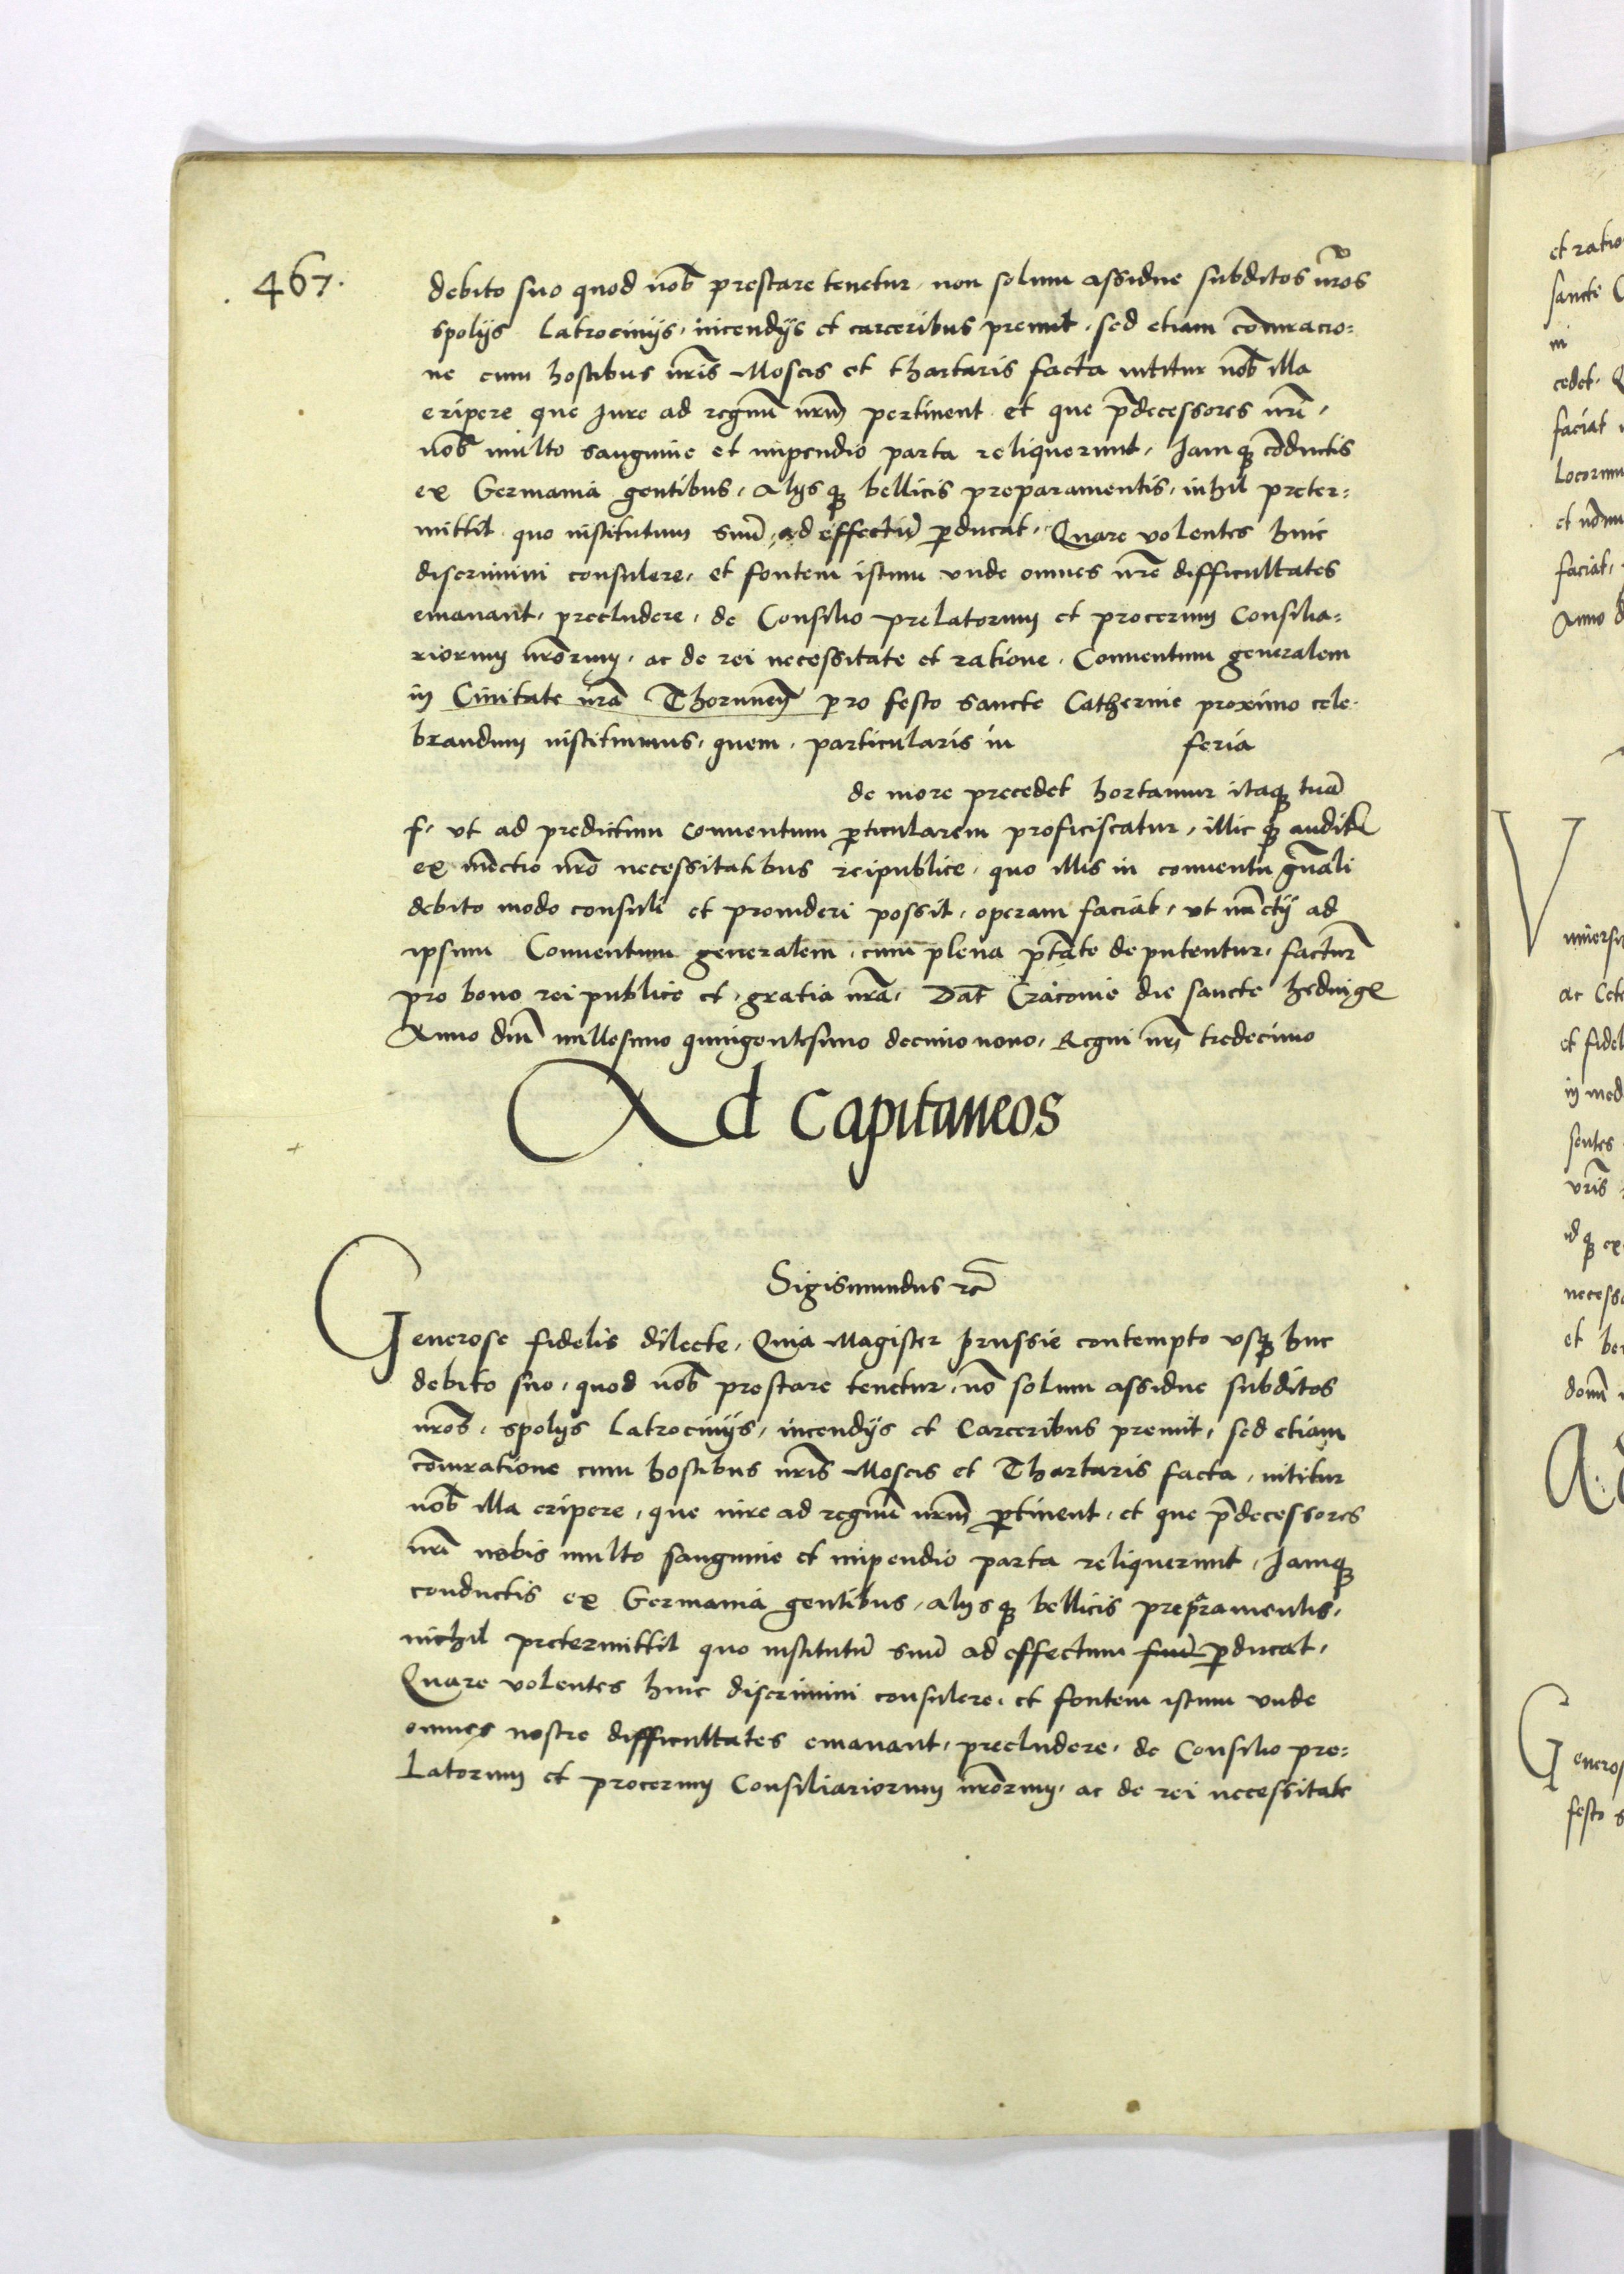 467.
debito suo quod nob̄ prestare tenetur, non solum assidue subditos nr̄os
spolijs Latrocinijs, incendijs et carceribus premit, sed etiam cōiuracio=
ne cum hostibus nr̄is Moscis et thartaris facta nititur nob̄ illa
eripere que Jure ad regnū nrm̄ pertinent et que p̄decessores nrī,
nob̄ multo sanguine et impendio parta reliquerunt, Jamqꝫ cōductis
ex Germania gentibus, Alijsqꝫ bellicis preparamentis, nihil preter=
mittit quo institutum suū, ad effectū ꝑducat, Quare volentes huic
discrimini consulere, et fontem istum vnde omnes nrē difficultates
emanant, precludere, de Consilio prelatorum et procerum Consilia=
riorum nrōrum, ac de rei necessitate et ratione, Conuentum generalem
in Ciuitate nrā Thorunen̄ pro festo sancte Catherine proximo cele=
brandum instituimus, quem, particularis in feria
de more precedet hortamur itaqꝫ tuā
f, vt ad predictum conuentum ꝑticularem proficiscatur, illicqꝫ auditꝭ
ex nūctio nrō necessitatibus reipublice, quo illis in conuentu gn̄ali
debito modo consuli et prouideri possit, operam faciat, vt nūctij ad
ipsum Conuentum generalem, cum plena ptāte deputentur, factur̄
pro bono rei publice et, gratia nrā, Dat̄ Cracouie die sancte heduigꝭ
Anno dnī millesimo quingentesimo decimo nono, Regni nrī tredecimo
Ad Capitaneos
Sigismundus rc̄
Generose fidelis dilecte, Quia Magister prussie contempto vsqꝫ huc
debito suo, quod nob̄ prestare tenetur, nō solum assidue subditos
nrōs, spolijs Latrocinijs, incendijs et Carceribus premit, sed etiam
cōiuratione cum hostibus nrīs Moscis et Thartaris facta, nititur
nob̄ illa eripere, que iure ad regnū nrm̄ ꝑtinent, et que p̄decessores
nrī nobis multo sanguine et impendio parta reliquerunt, Jamqꝫ
conductis ex Germania gentibus, alijsqꝫ bellicis prepr̄amentis,
nichil pretermittit quo institutū suū ad effectum suū ꝑducat,
Quare volentes huic discrimini consulere, et fontem istum vnde
omnes nostre difficultates emanant, precludere, de Consilio pre=
Latorum et procerum Consiliariorum nrōrum, ac de rei necessitate